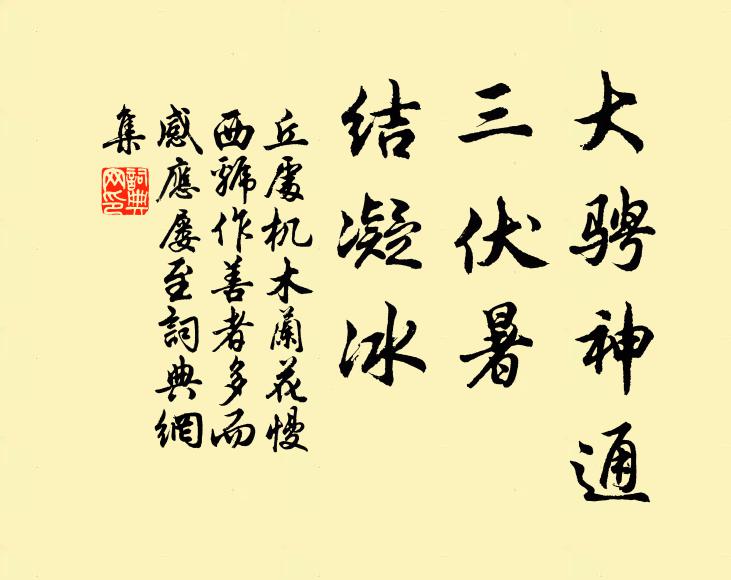 大骋神通
三伏暑
结凝冰
丘處机木蘭花慢
西虢作善者多而
感應屡至詞典網
集
詞典
网印